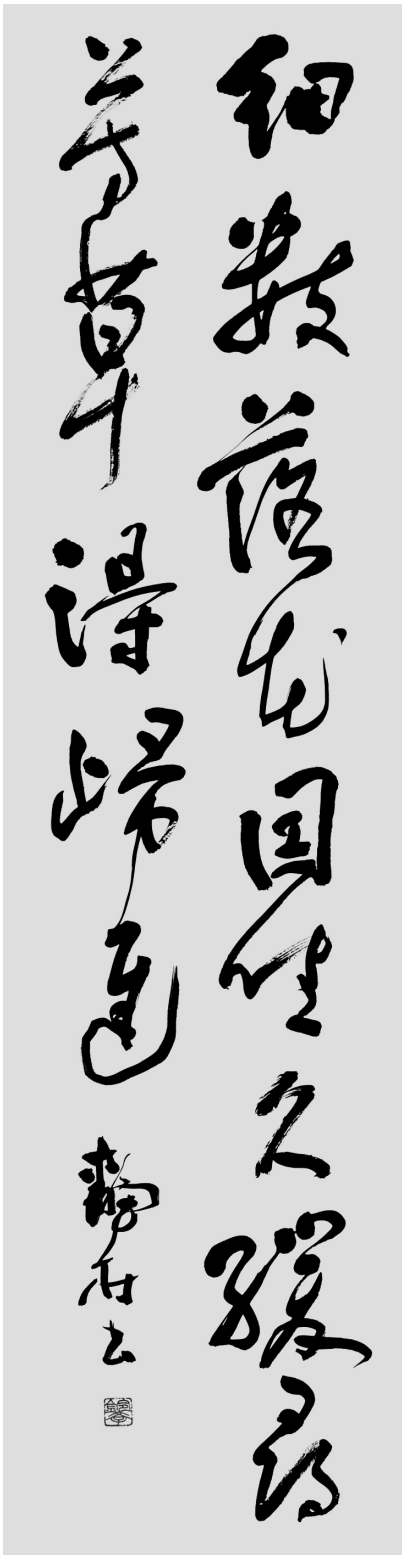 細數落花因坐久緩尋
芳草得歸遲